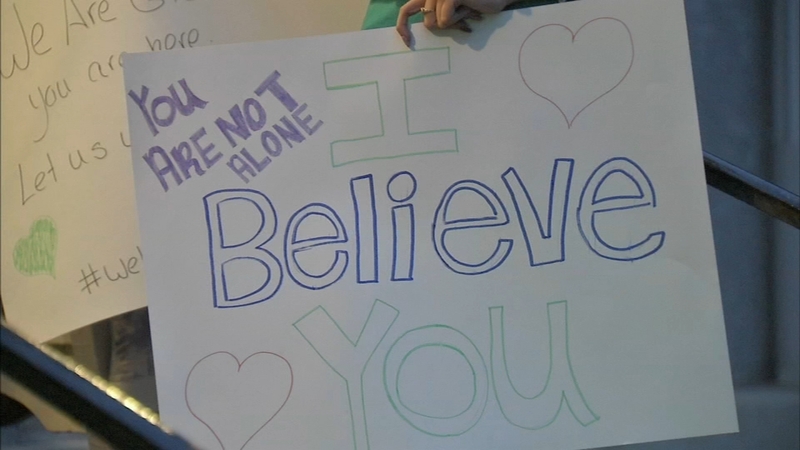 We Are
you are here.
Let us
#We
YOU
ARE NOT
ALONE
I
Believe
You